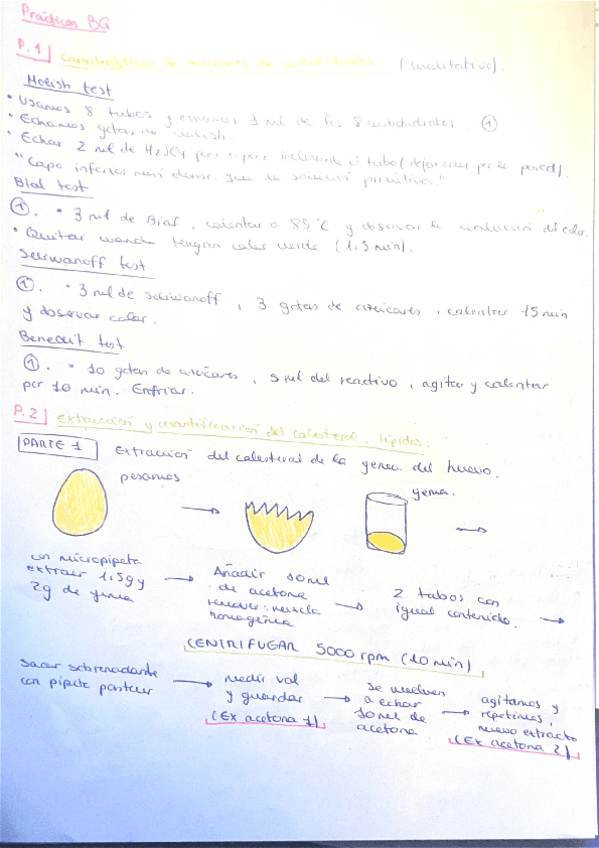 Prácticas BQ
P.1 Características de reacciones de carbohidratos. (cualitativo).
Molish test
• Usamos 8 tubos y echamos 1 ml de los 8 carbohidratos. ①
• Echamos gotas de molish.
• Echar 2 ml de H2SO4 poco a poco inclinando el tubo (dejar caer por la pared).
"Capa inferior más densa que la solución problema."
Bial test
①. • 3 ml de Bial, calentar a 85°C y observar la evolución de color.
• Quitar cuando tengan color verde (1.5 min).
Seliwanoff test
①. • 3 ml de seliwanoff, 3 gotas de azúcares, calentar 15 min
y observar color.
Benedit test
①. • 10 gotas de azúcares, 5 ml del reactivo, agitar y calentar
por 10 min. Enfriar.
P.2 Extracción y cuantificación del colesterol. lípidos.
PARTE 1 Extracción del colesterol de la yema del huevo.
pesamos
yema.
con micropipeta → Añadir 10 ml → 2 tubos con →
extraer 1.5g y de acetona igual contenido.
2g de yema remover: mezcla
homogénea
CENTRIFUGAR 5000 rpm (10 min)
Sacar sobrenadante → medir vol → Se vuelven → agitamos y
con pipeta pasteur y guardar a echar repetimos,
(Ex acetona 1) 10 ml de nuevo extracto
acetona (Ex acetona 2)